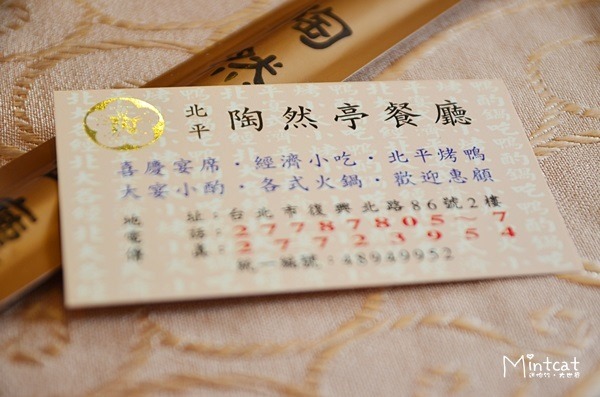 陶然
陶
北平 陶然亭餐廳
喜慶宴席・經濟小吃・北平烤鴨
大宴小酌・各式火鍋・歡迎惠顧
地址：台北市復興北路86號2樓
電話：27787805~7
傳真：27723954
統一編號：48949952
Mintcat